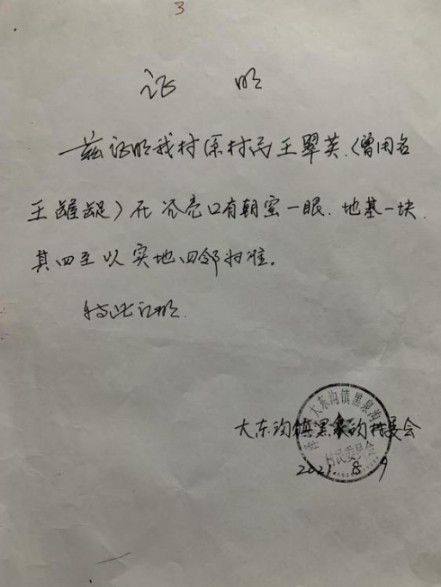 3
证 明
兹证明我村原村民王翠英.(曾用名
王)在 口有朝窑一眼.地基一块.
其四至以实地四邻为准。
特此证明.
大东沟镇黑泉沟村委会
大东沟镇黑泉沟
村民委员会
2021 8 9